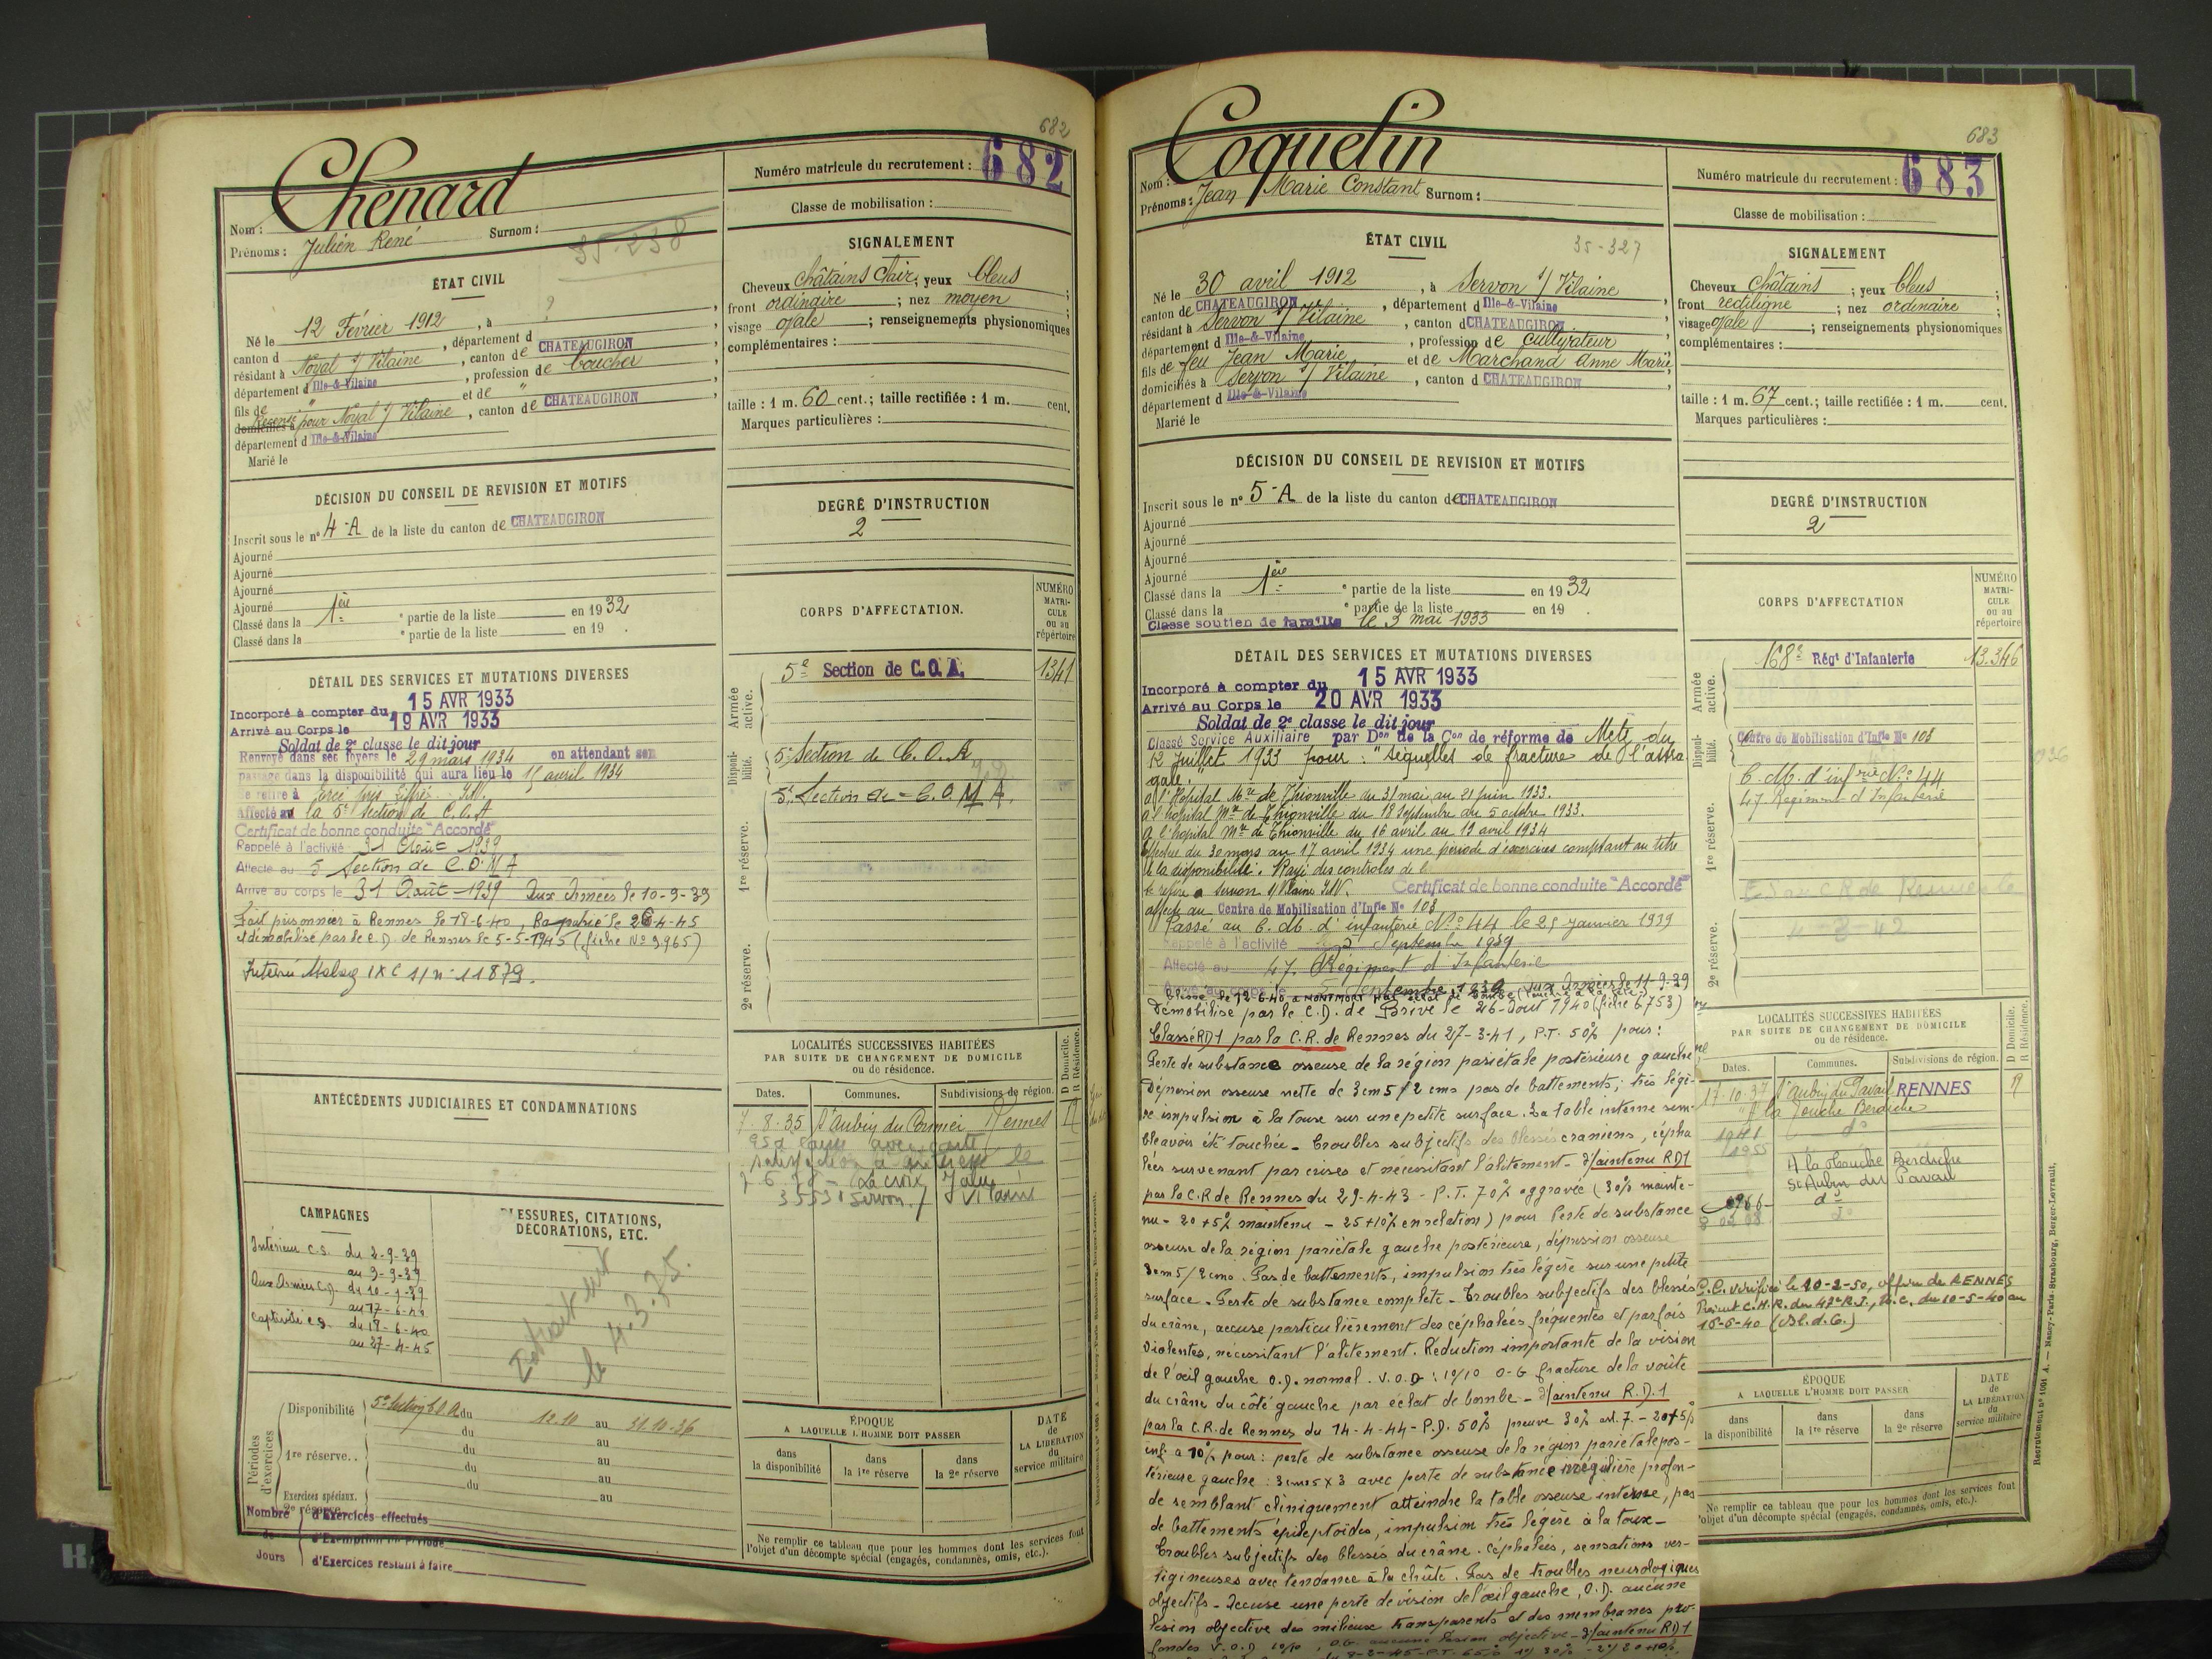 682
Chenard
Nom :
Prénoms : Julien René Surnom :
35-238
Numéro matricule du recrutement : 682
Classe de mobilisation :
ÉTAT CIVIL
Né le 12 Février 1912, à ?
canton d , département d
résidant à Noyal s/ Vilaine, canton de CHATEAUGIRON
département d Ille-&-Vilaine, profession de boucher
fils de " et de "
domiciliés à Recensé pour Noyal s/ Vilaine, canton de CHATEAUGIRON
département d Ille-&-Vilaine
Marié le
SIGNALEMENT
Cheveux châtains clair; yeux bleus;
front ordinaire; nez moyen;
visage ovale; renseignements physionomiques
complémentaires :
taille : 1 m. 60 cent.; taille rectifiée : 1 m. cent.
Marques particulières :
DÉCISION DU CONSEIL DE REVISION ET MOTIFS
Inscrit sous le n° 4-A de la liste du canton de CHATEAUGIRON
Ajourné
Ajourné
Ajourné
Ajourné
Classé dans la 1ère e partie de la liste en 1932
Classé dans la e partie de la liste en 19 .
DEGRÉ D'INSTRUCTION
2
DÉTAIL DES SERVICES ET MUTATIONS DIVERSES
Incorporé à compter du 15 AVR 1933
Arrivé au Corps le 19 AVR 1933
Soldat de 2e classe le dit jour
Renvoyé dans ses foyers le 29 mars 1934 en attendant son
passage dans la disponibilité qui aura lieu le 15 avril 1934
Se retire à
Affecté à la 5e Section de C.O.A
Certificat de bonne conduite "Accordé"
Rappelé à l'activité 31 Août 1939
Affecté au 5 Section de C.O.M.A
Arrivé au corps le 31 Août 1939 Aux Armées le 10-9-39
Fait prisonnier à Rennes le 18-6-40, Rapatrié le 26-4-45
et démobilisé par le C.D. de Rennes le 5-5-1945 (fiche No 9965)
Interné Stalag IX C n° 11879.
CORPS D'AFFECTATION.
NUMÉRO MATRICULE ou au répertoire
Armée active.
5e Section de C.O.A. 1341
Disponibilité.
5e Section de C.O.A
5e Section de C.O.M.A.
1re réserve.
2e réserve.
ANTÉCÉDENTS JUDICIAIRES ET CONDAMNATIONS
LOCALITÉS SUCCESSIVES HABITÉES
PAR SUITE DE CHANGEMENT DE DOMICILE
ou de résidence.
D Domicile.
R Résidence.
Dates. Communes. Subdivisions de région.
7-8-35 St Aubin du Cormier Rennes R
La croix
35531 Servon s/ Vilaine
CAMPAGNES
Intérieur C.S. du 2-9-39
au 9-9-39
Aux Armées C.D. du 10-9-39
au 17-6-40
Captivité C.S. du 18-6-40
au 27-4-45
BLESSURES, CITATIONS,
DÉCORATIONS, ETC.
Extrait
le 4.3.75.
Périodes d'exercices
Disponibilité 5e Section C.O.A du 12.10 au 31.10.36
du au
1re réserve.. du au
du au
du au
Exercices spéciaux. du au
2e réserve
Nombre de Jours
d'Exercices effectués
d'Exemption de période
d'Exercices restant à faire
ÉPOQUE
A LAQUELLE L'HOMME DOIT PASSER
dans la disponibilité
dans la 1re réserve
dans la 2e réserve
DATE de LA LIBÉRATION du service militaire
Ne remplir ce tableau que pour les hommes dont les services font
l'objet d'un décompte spécial (engagés, condamnés, omis, etc.).
683
Coquelin
Nom :
Prénoms : Jean Marie Constant Surnom :
Numéro matricule du recrutement : 683
Classe de mobilisation :
ÉTAT CIVIL
35-327
Né le 30 avril 1912, à Servon s/ Vilaine
canton de CHATEAUGIRON, département d Ille-&-Vilaine
résidant à Servon s/ Vilaine, canton d CHATEAUGIRON
département d Ille-&-Vilaine, profession de cultivateur
fils de feu Jean Marie et de Marchand Anne Marie
domiciliés à Servon s/ Vilaine, canton d CHATEAUGIRON
département d Ille-&-Vilaine
Marié le
SIGNALEMENT
Cheveux châtains; yeux bleus;
front rectiligne; nez ordinaire;
visage ovale; renseignements physionomiques
complémentaires :
taille : 1 m. 67 cent.; taille rectifiée : 1 m. cent.
Marques particulières :
DÉCISION DU CONSEIL DE REVISION ET MOTIFS
Inscrit sous le n° 5-A de la liste du canton de CHATEAUGIRON
Ajourné
Ajourné
Ajourné
Ajourné
Classé dans la 1ère e partie de la liste en 1932
Classé dans la e partie de la liste en 19 .
Classé soutien de famille le 3 mai 1933
DEGRÉ D'INSTRUCTION
2
DÉTAIL DES SERVICES ET MUTATIONS DIVERSES
Incorporé à compter du 15 AVR 1933
Arrivé au Corps le 20 AVR 1933
Soldat de 2e classe le dit jour
Classé Service Auxiliaire par Don de la Con de réforme de Metz du
12 Juillet 1933 pour : "séquelles de fracture de l'astra
gale."
a l'Hôpital Mre de Thionville du 31 mai au 21 juin 1933.
à l'hôpital Mre de Thionville du 18 Septembre au 5 octobre 1933.
à l'hôpital Mre de Thionville du 16 avril au 19 avril 1934
Effectué du 30 mars au 17 avril 1934 une période d'exercices comptant au titre
de la disponibilité. Rayé des contrôles de
Se retire à Servon s/ Vilaine I&V. Certificat de bonne conduite "Accordé"
affecté au Centre de Mobilisation d'Infie No 103
Passé au C. M. d'infanterie No 44 le 25 Janvier 1939
Rappelé à l'activité Septembre 1939
Affecté au 47. Régiment d'Infanterie
Arrivé au corps le 5 Septembre 1939 aux Armées le 11-9-39
Blessé le 12-6-40 à MONTMORT
Démobilisé par le C.D. de Brive le 26-Aout 1940 (fiche 6753)
Classé RD1 par la C.R. de Rennes du 27-3-41, P.T. 50% pour :
Perte de substance osseuse de la région pariétale postérieure gauche
Dépression osseuse nette de 3cm5/2 cms pas de battements; très légè-
re impulsion à la toux sur une petite surface. La table interne sem-
ble avoir été touchée - Troubles subjectifs des blessés craniens, cépha
lées survenant par crises et nécessitant l'alitement - Maintenu RD1
par la C.R de Rennes du 29-4-43 - P.T. 70% aggravée (30% mainte-
nu - 20 + 5% maintenu - 25 + 10% en relation) pour Perte de substance
osseuse de la région pariétale gauche postérieure, dépression osseuse
3cm5/2cms. Pas de battements, impulsion très légère sur une petite
surface. Perte de substance complète - Troubles subjectifs des blessés
du crâne, accuse particulièrement des céphalées fréquentes et parfois
violentes, nécessitant l'alitement. Réduction importante de la vision
de l'œil gauche O.D. normal. V.O.D : 10/10 O-G fracture de la voûte
du crâne du côté gauche par éclat de bombe - Maintenu R.D.1
par la C.R. de Rennes du 14-4-44 - P.D. 50% preuve 30% art. 7. - 20+5%
inf. à 10% pour : perte de substance osseuse de la région pariétale pos-
térieure gauche : 3cms5 x 3 avec perte de substance irrégulière profon-
de semblant cliniquement atteindre la table osseuse interne, pas
de battements épileptoïdes, impulsion très légère à la toux -
Troubles subjectifs des blessés du crâne. céphalées, sensations ver-
tigineuses avec tendance à la chûte. Pas de troubles neurologiques
objectifs - Accuse une perte de vision de l'œil gauche, O.D. aucune
lésion objective des milieux transparents et des membranes pro-
fondes V.O.D 10/10, O.G. aucune lésion objective - Maintenu RD1
CORPS D'AFFECTATION
NUMÉRO MATRICULE ou au répertoire
Armée active.
168e Régt d'Infanterie 13.346
Disponibilité.
Centre de Mobilisation d'Infie No 103
C. M. d'infrie No 44
47 Régiment d'Infanterie
1re réserve.
2e réserve.
LOCALITÉS SUCCESSIVES HABITÉES
PAR SUITE DE CHANGEMENT DE DOMICILE
ou de résidence.
D Domicile.
R Résidence.
Dates. Communes. Subdivisions de région.
17.10.37 St Aubin du Pavail RENNES R
la Touche Berdiche
1941 do
1955
A la Touche Berdiche
St Aubin du Pavail
do
C.C. vérifié le 20-2-50, officier de RENNES
16-6-40
ÉPOQUE
A LAQUELLE L'HOMME DOIT PASSER
dans la disponibilité
dans la 1re réserve
dans la 2e réserve
DATE de LA LIBÉRATION du service militaire
Ne remplir ce tableau que pour les hommes dont les services font
l'objet d'un décompte spécial (engagés, condamnés, omis, etc.).
Recrutement n° 1001 A. — Nancy-Paris-Strasbourg, Berger-Levrault.